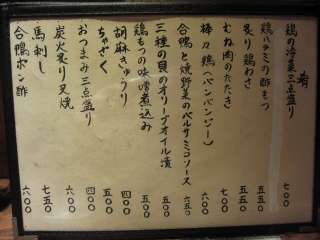 肴
鶏の冷菜三点盛り 七〇〇
鶏ハラミの酢もつ 五五〇
炙り鶏わさ 五五〇
むね肉のたたき 七〇〇
棒々鶏(バンバンジー) 六〇〇
合鴨と焼野菜のバルサミコソース 六五〇
三種の貝のオリーブオイル漬 五五〇
鶏もつの味噌煮込み 五五〇
胡麻きゅうり 四〇〇
ちゃざく 五〇〇
おつまみ三点盛り 四〇〇
炭火炙り叉焼 六〇〇
馬刺し 七五〇
合鴨ポン酢 六〇〇